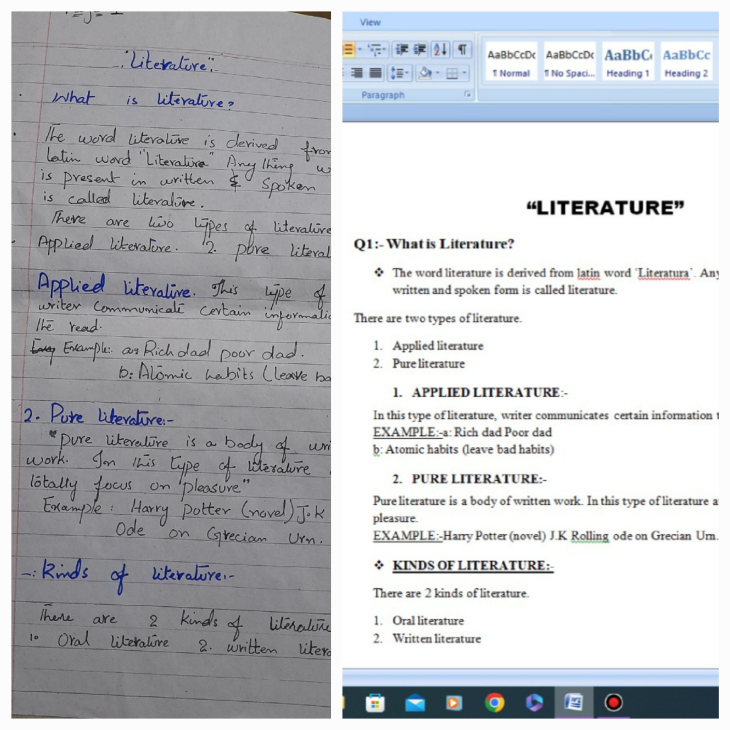 "Literature".
What is literature?
The word literature is derived from
Latin word "Literatura" Any thing
is present in written & spoken
is called literature.
There are two types of literature
Applied literature. 2. pure literat
Applied literature. This type of
writer communicate certain informati
the read.
Example:- a: Rich dad poor dad.
b: Atomic habits (leave ba
2. Pure literature:-
"pure literature is a body of wri
work. In this type of literature
totally focus on "pleasure"
Example: Harry potter (novel) J.K
Ode on Grecian Urn.
-: Kinds of literature:-
There are 2 kinds of literature
1. Oral literature 2. written litera
View
AaBbCcDc AaBbCcDc AaBbC AaBbCc
¶ Normal ¶ No Spaci... Heading 1 Heading 2
Paragraph
“LITERATURE”
Q1:- What is Literature?
❖ The word literature is derived from latin word ‘Literatura’. Any
written and spoken form is called literature.
There are two types of literature.
1. Applied literature
2. Pure literature
1. APPLIED LITERATURE:-
In this type of literature, writer communicates certain information t
EXAMPLE:-a: Rich dad Poor dad
b: Atomic habits (leave bad habits)
2. PURE LITERATURE:-
Pure literature is a body of written work. In this type of literature a
pleasure.
EXAMPLE:-Harry Potter (novel) J.K Rolling ode on Grecian Urn.
❖ KINDS OF LITERATURE:-
There are 2 kinds of literature.
1. Oral literature
2. Written literature